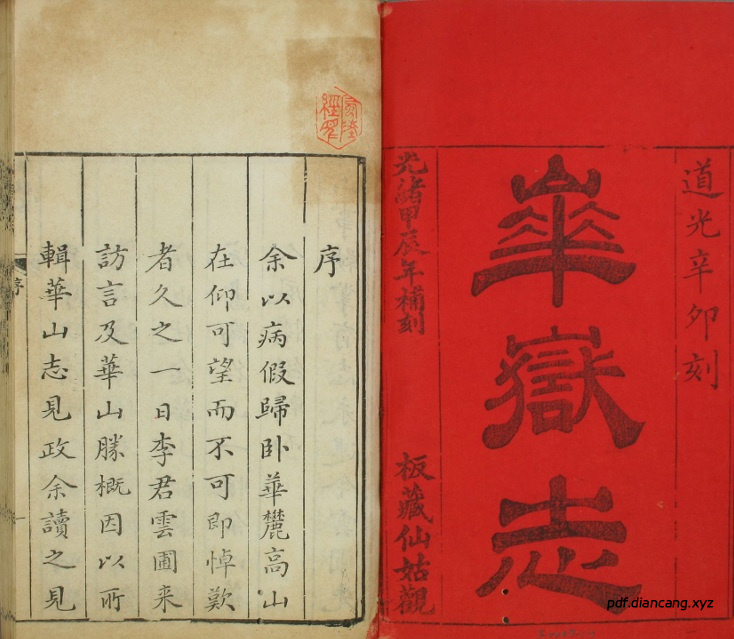 道光辛卯刻
華嶽志
光緒甲辰年補刻
板藏仙姑觀
序
余以病假歸卧華麓高山
在仰可望而不可即悼歎
者久之一日李君雲圃来
訪言及華山勝概因以所
輯華山志見政余讀之見
序
pdf.diancang.xyz